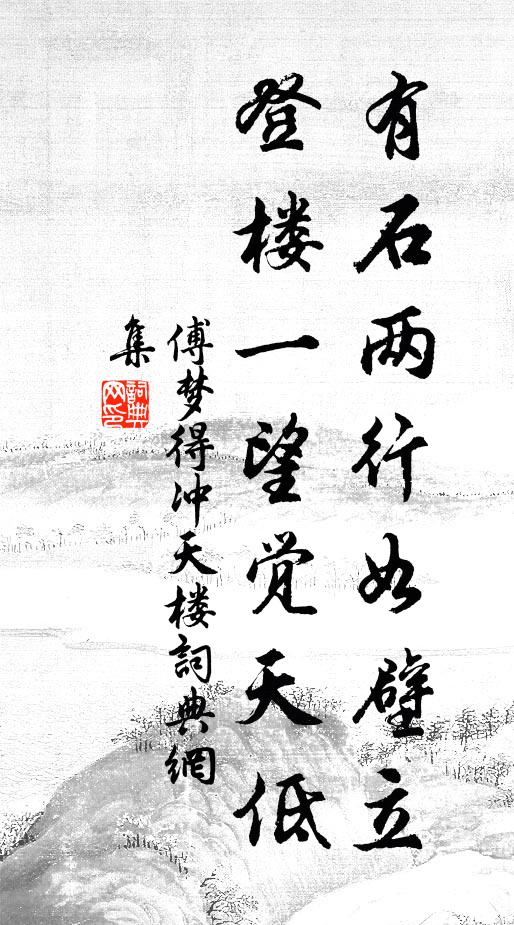 有石两行如壁立
登楼一望觉天低
傅梦得冲天楼詞典網
集
詞典网印